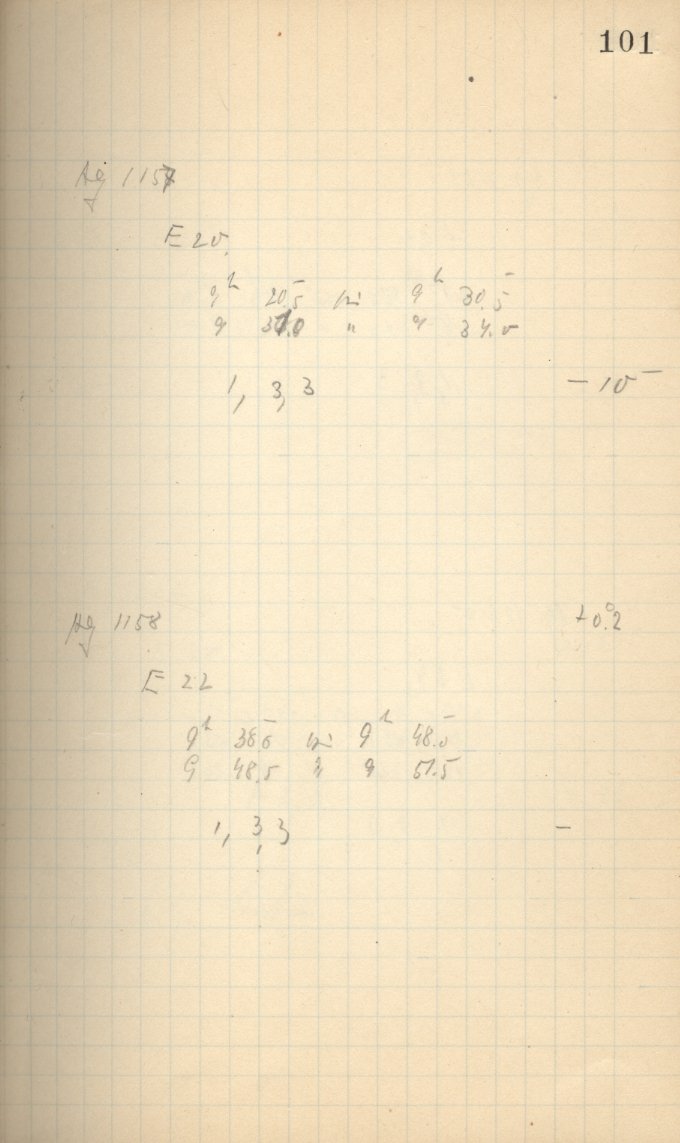 101
Ag 1157
E 25.
9h 20.5 bis 9h 30.5
9 31.0 " 9 34.0
1, 3, 3 – 15 –
Ag 1158 +0.°2
E 22
9h 38.5 bis 9h 48.5
9 48.5 " 9 51.5
1, 3, 3 –